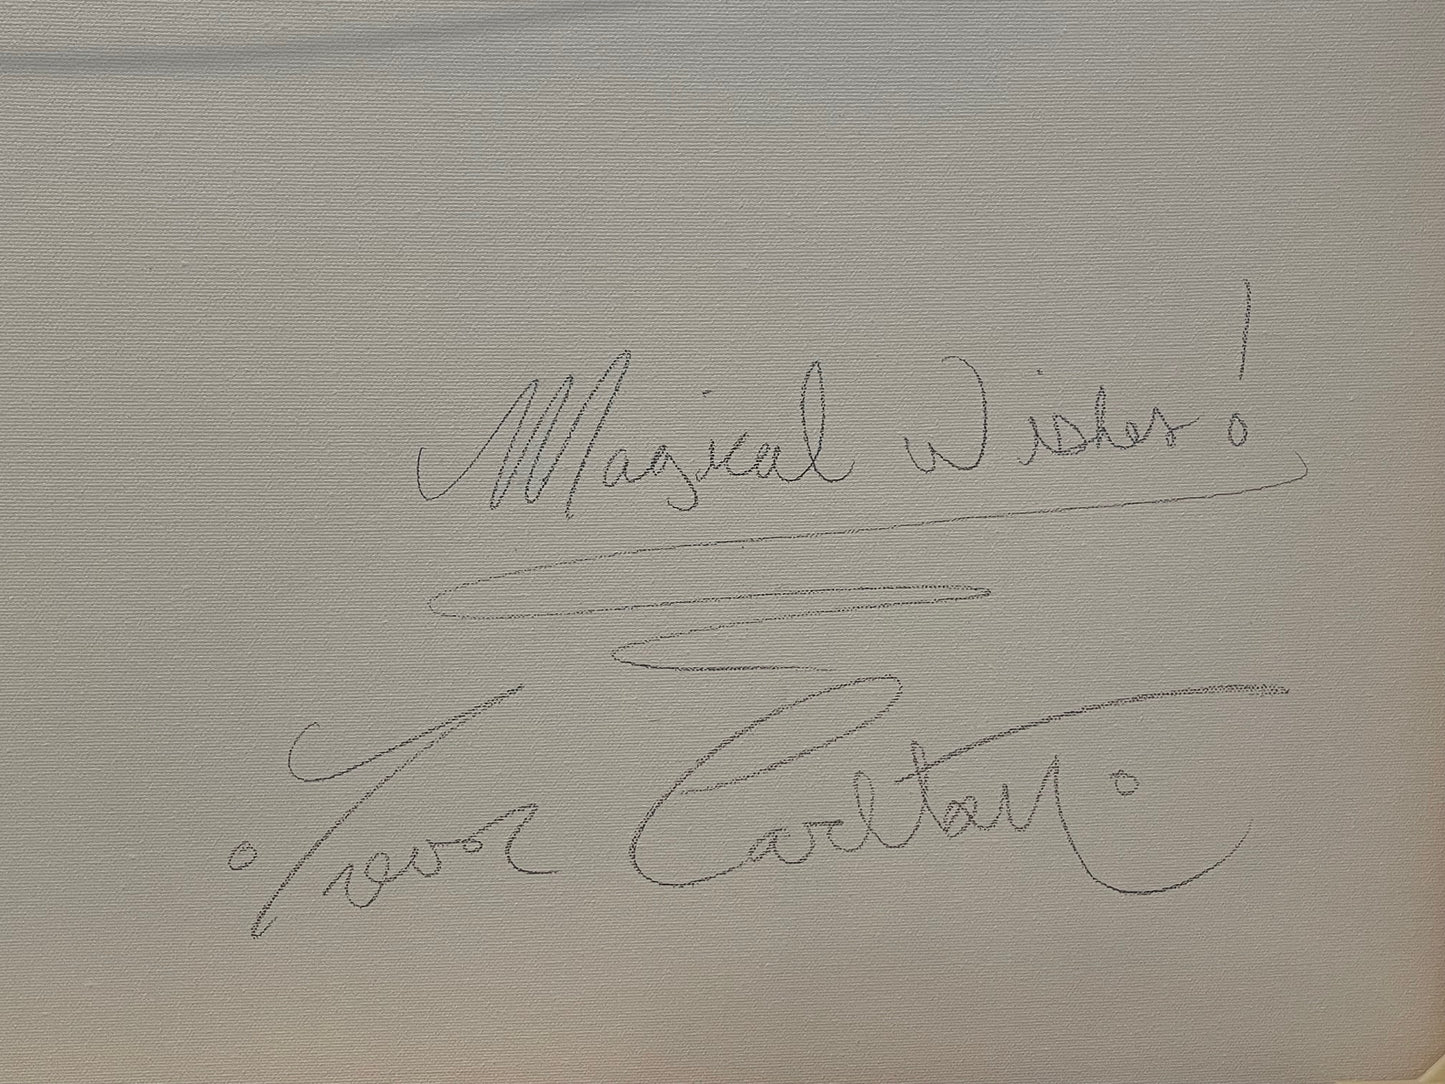 Magical Wishes!
Trevor Carlton